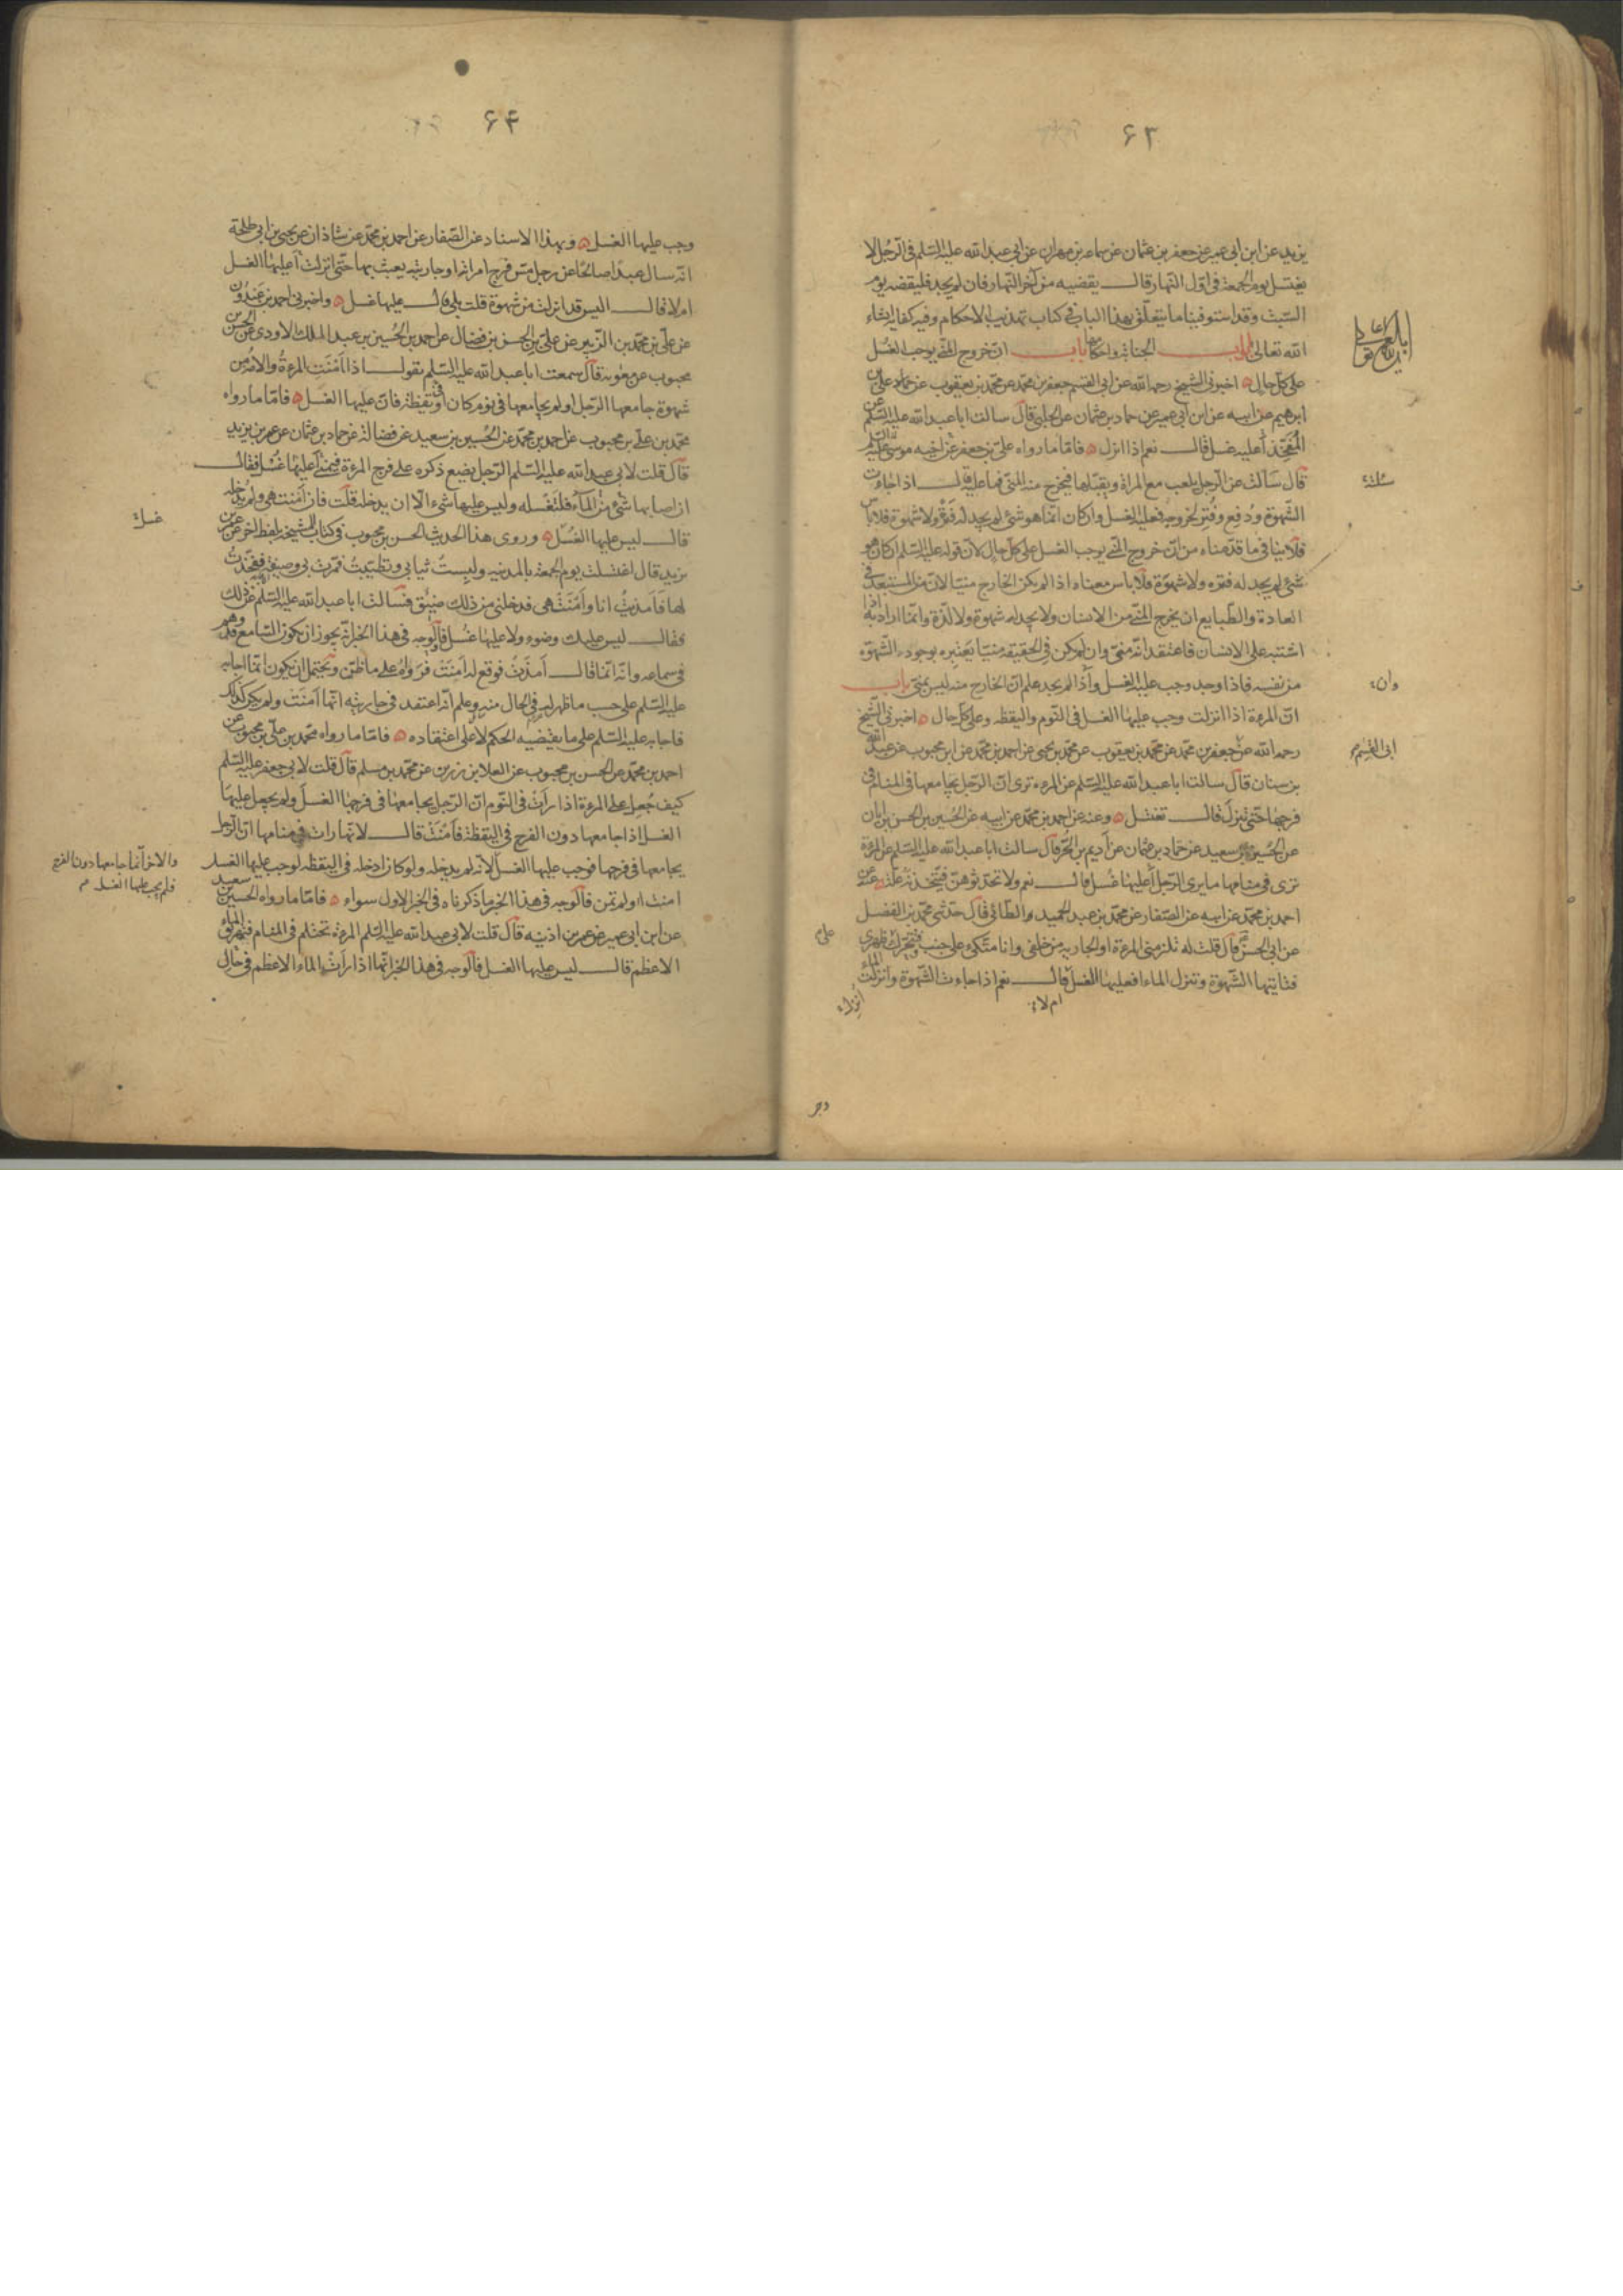 ۶۳
يزيد عن ابن ابى عمير عن جعفر بن عثمان عن سماعه بن مهران عن ابى عبد الله عليه السّلم فى الرّجل لا
يغتسل يوم الجمعة فى اوّل النهار قال يقضيه من آخر النّهار فان لم يجد فليقضه يوم
السّبت وقد استوفينا ما يتعلّق بهذا الباب فى كتاب تهذيب الاحكام وفيه كفايه انشاء
الله تعالى ابواب الجنابة واحكامها باب انّ خروج المنّى يوجب الغُسل
على كلّ حال اخبرنى الشيخ رحمه الله عن ابى القسم جعفر بن محمّد عن محمّد بن يعقوب عن على بن
ابرهيم عن ابيه عن ابن ابى عمير عن حماد بن عثمان عن الحلبى قال سالت ابا عبد الله عليه السّلم عن
المُفَخِّذ أعليه غسل قال نعم اذا انزل فامّا ما رواه علىّ بن جعفر عن اخيه موسى عليه السّلم
قال سَألته عن الرّجل يلعب مع المراة ويقبّلها فيخرج منه المنّى فما عليه قال اذا جاءت
الشّهوة ودُفِع وفَتَر لخروجه فعليه الغسل وان كان انّما هو شىء لم يجد له فترة ولا شهوة فلا باس
فلا ينافى ما قدّمناه من انّ خروج المنّى يوجب الغسل على كلّ حال لانّ قوله عليه السّلم ان كان هو
شىء لم يجد له فتره ولا شهوة فلا باس معناه اذا لم يكن الخارج منيّا لانّ من المستبعد فى
العادة والطّبايع ان يخرج المنّى من الانسان ولا يجد له شهوة ولا لذّة وانّما اراد به اذا
اشتبه على الانسان فاعتقد انّه منىّ وان لم يكن فى الحقيقه منيّا يَعتبره بوجود الشّهوة
من نفسه فاذا وجد وجب عليه الغسل واذا لم يجد علم انّ الخارج منه ليس بمنى باب
انّ المرءة اذا انزلت وجب عليها الغسل فى النّوم واليقظه وعلى كلّ حال اخبرنى الشّيخ
رحمه الله عن جعفر بن محمّد عن محمّد بن يعقوب عن محمّد بن يحيى عن احمد بن محمّد عن ابن محبوب عن عبد الله
بن سنان قال سالت ابا عبد الله عليه السّلم عن المرءة ترى انّ الرّجل يجامعها فى المنام فى
فرجها حتّى تنزل قال تغتسل وعنه عن احمد بن محمّد عن ابيه عن الحُسين بن الحسن بن ابان
عن الحُسين بن سعيد عن حمّاد بن عثمان عن أديم بن الحُرّ قال سالت ابا عبد الله عليه السّلم عن المرءة
ترى فى منامها ما يرى الرّجل أعليها غُسل قال نعم ولا تحدّثوهنّ فيتّخذنه علّة وعنه عن
احمد بن محمّد عن ابيه عن الصّفار عن محمّد بن عبد الحميد والطّائى قال حدّثنى محمّد بن الفضل
عن ابى الحسن قال قلت له تلزمنى المرءة او الجاريه من خلفى وانا متّكىء على جنب فتتحرّك على ظهرى
فتاتيها الشّهوة وتنزل الماء افعليها الغسل قال نعم اذا جاءت الشّهوة وانزلت الماء
ام لا
وان
ابى القسم
۶۴
وجب عليها الغسل وبهذا الاسناد عن الصّفار عن احمد بن محمّد عن شاذان عن يحيى بن ابى طلحة
انّه سال عبدًا صالحًا عن رجل مسّ فرج امراته او جاريته يعبث بها حتّى انزلت أعليها الغسل
ام لا قال اليس قد انزلت من شهوة قلت بلى قال عليها غسل واخبرنى احمد بن عبدون
عن علىّ بن محمّد بن الزّبير عن علىّ بن الحسن بن فضال عن احمد بن الحُسين بن عبد الملك الاودى عن الحسن بن
محبوب عن معٰويه قال سمعت ابا عبد الله عليه السّلم يقول اذا اَمْنَتِ المرءةُ والامة من
شهوة جامعها الرّجل او لم يجامعها فى نوم كان او فى يقظة فانّ عليها الغسل فامّا ما رواه
محمّد بن على بن محبوب عن احمد بن محمّد عن الحُسين بن سعيد عن فضالة عن حماد بن عثمان عن عمر بن يزيد
قال قلت لابى عبد الله عليه السّلم الرّجل يضع ذكره على فرج المرءة فيمنى أعليها غُسل فقال
ان اصابها شىء من الماء فلتغسله وليس عليها شىء الّا ان يدخله قلت فان اَمنَت هى ولم يدخله
قال ليس عليها الغُسل وروى هذا الحديث الحسن بن محبوب فى كتاب المشيخة بلفظ آخر عن عمر بن
يزيد قال اغتسلت يوم الجمعة بالمدينه ولبِستُ ثيابى وتطيّبتُ فمرّت بى وصيفة ففخّذتُ
لها فَاَمذيتُ انا واَمْنَتْ هى فدخلنى من ذلك ضيق فسألت ابا عبد الله عليه السّلم عن ذلك
فقال ليس عليك وضوء ولا عليها غُسل فالوجه فى هذا الخبر انّه يجوز ان يكون السّامع قد وهم
فى سماعه وانّه انّما قال اَمذَتْ فوقع له اَمنَتْ فرَواهُ على ما ظنّ ويحتمل ان يكون انّما اجابه
عليه السّلم على حسب ما ظهر له فى الحال منه وعلم انّه اعتقد فى جاريته انّها اَمنَتْ ولم يكن كذلك
فاجابه عليه السّلم على ما يقتضيه الحكم لا على اعتقاده فامّا ما رواه محمّد بن علىّ بن محبوب عن
احمد بن محمّد عن الحسن بن محبوب عن العلا بن رزين عن محمّد بن مسلم قال قلت لابى جعفر عليه السّلم
كيف جُعِل على المرءة اذا راَت فى النّوم انّ الرّجل يجامعها فى فرجها الغسل ولم يجعل عليها
الغسل اذا جامعها دون الفرج فى اليقظة فاَمْنَتْ قال لانّها رات فى منامها انّ الرّجل
يجامعها فى فرجها فوجب عليها الغسل لانّه لم يدخله ولو كان ادخله فى اليقظه لوجب عليها الغسل
والاخر انّما جامعها دون الفرج
فلم يجب عليها الغسل
امنت او لم تمن فالوجه فى هذا الخبر ما ذكرناه فى الخبر الاول سواء فامّا ما رواه الحسين بن سعيد
عن ابن ابى عمير عن عمر بن اذنيه قال قلت لابى عبد الله عليه السّلم المرءة تحتلم فى المنام فتهريق الماء
الاعظم قال ليس عليها الغسل فالوجه فى هذا الخبر انّها اذا رَاَتْ الماء الاعظم فى حال